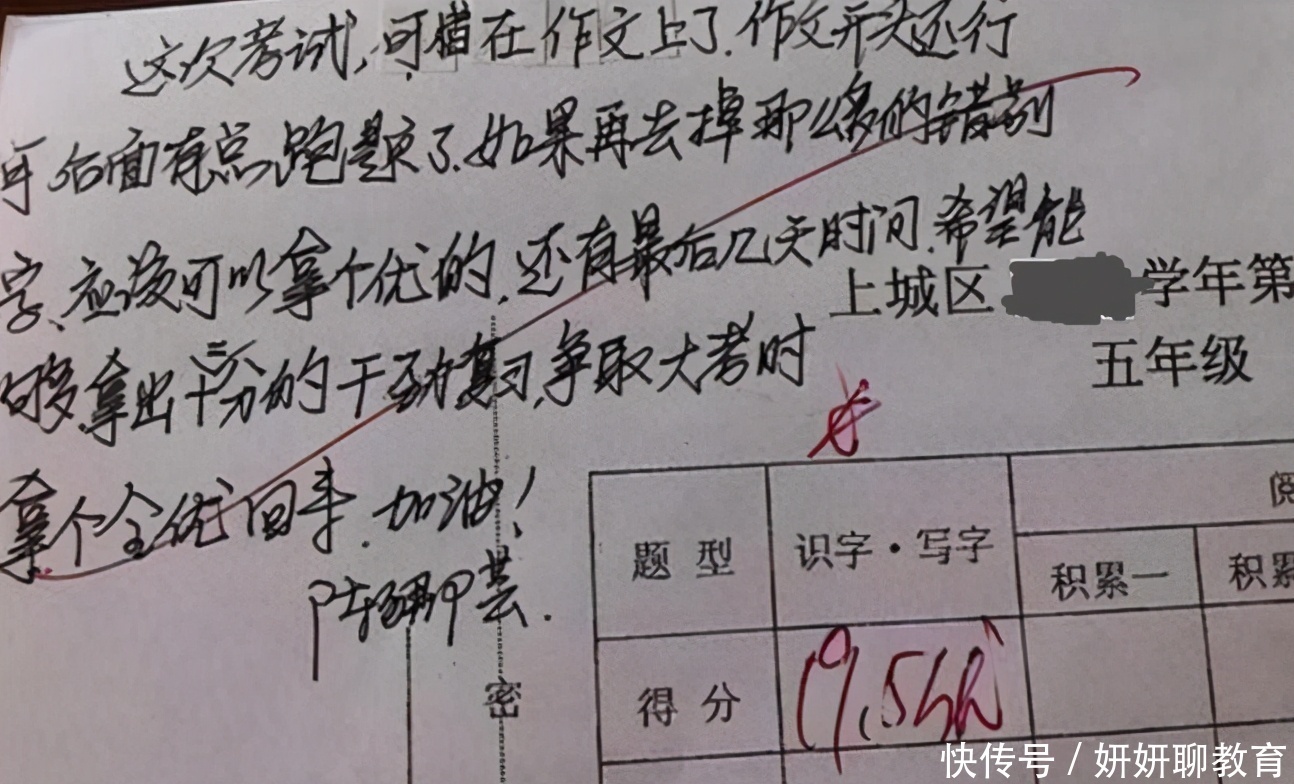 这次考试,可惜在作文上了.作文开头还行
后面有点跑题了.如果再去掉那么多的错别
字、应该可以拿个优的.还有最后几天时间.希望能
够拿出十二分的干劲复习,争取大考时
拿个全优回来.加油!
上城区
学年第
五年级
题 型
识字·写字
积累一
积累
得 分
密
快传号 / 妍妍聊教育